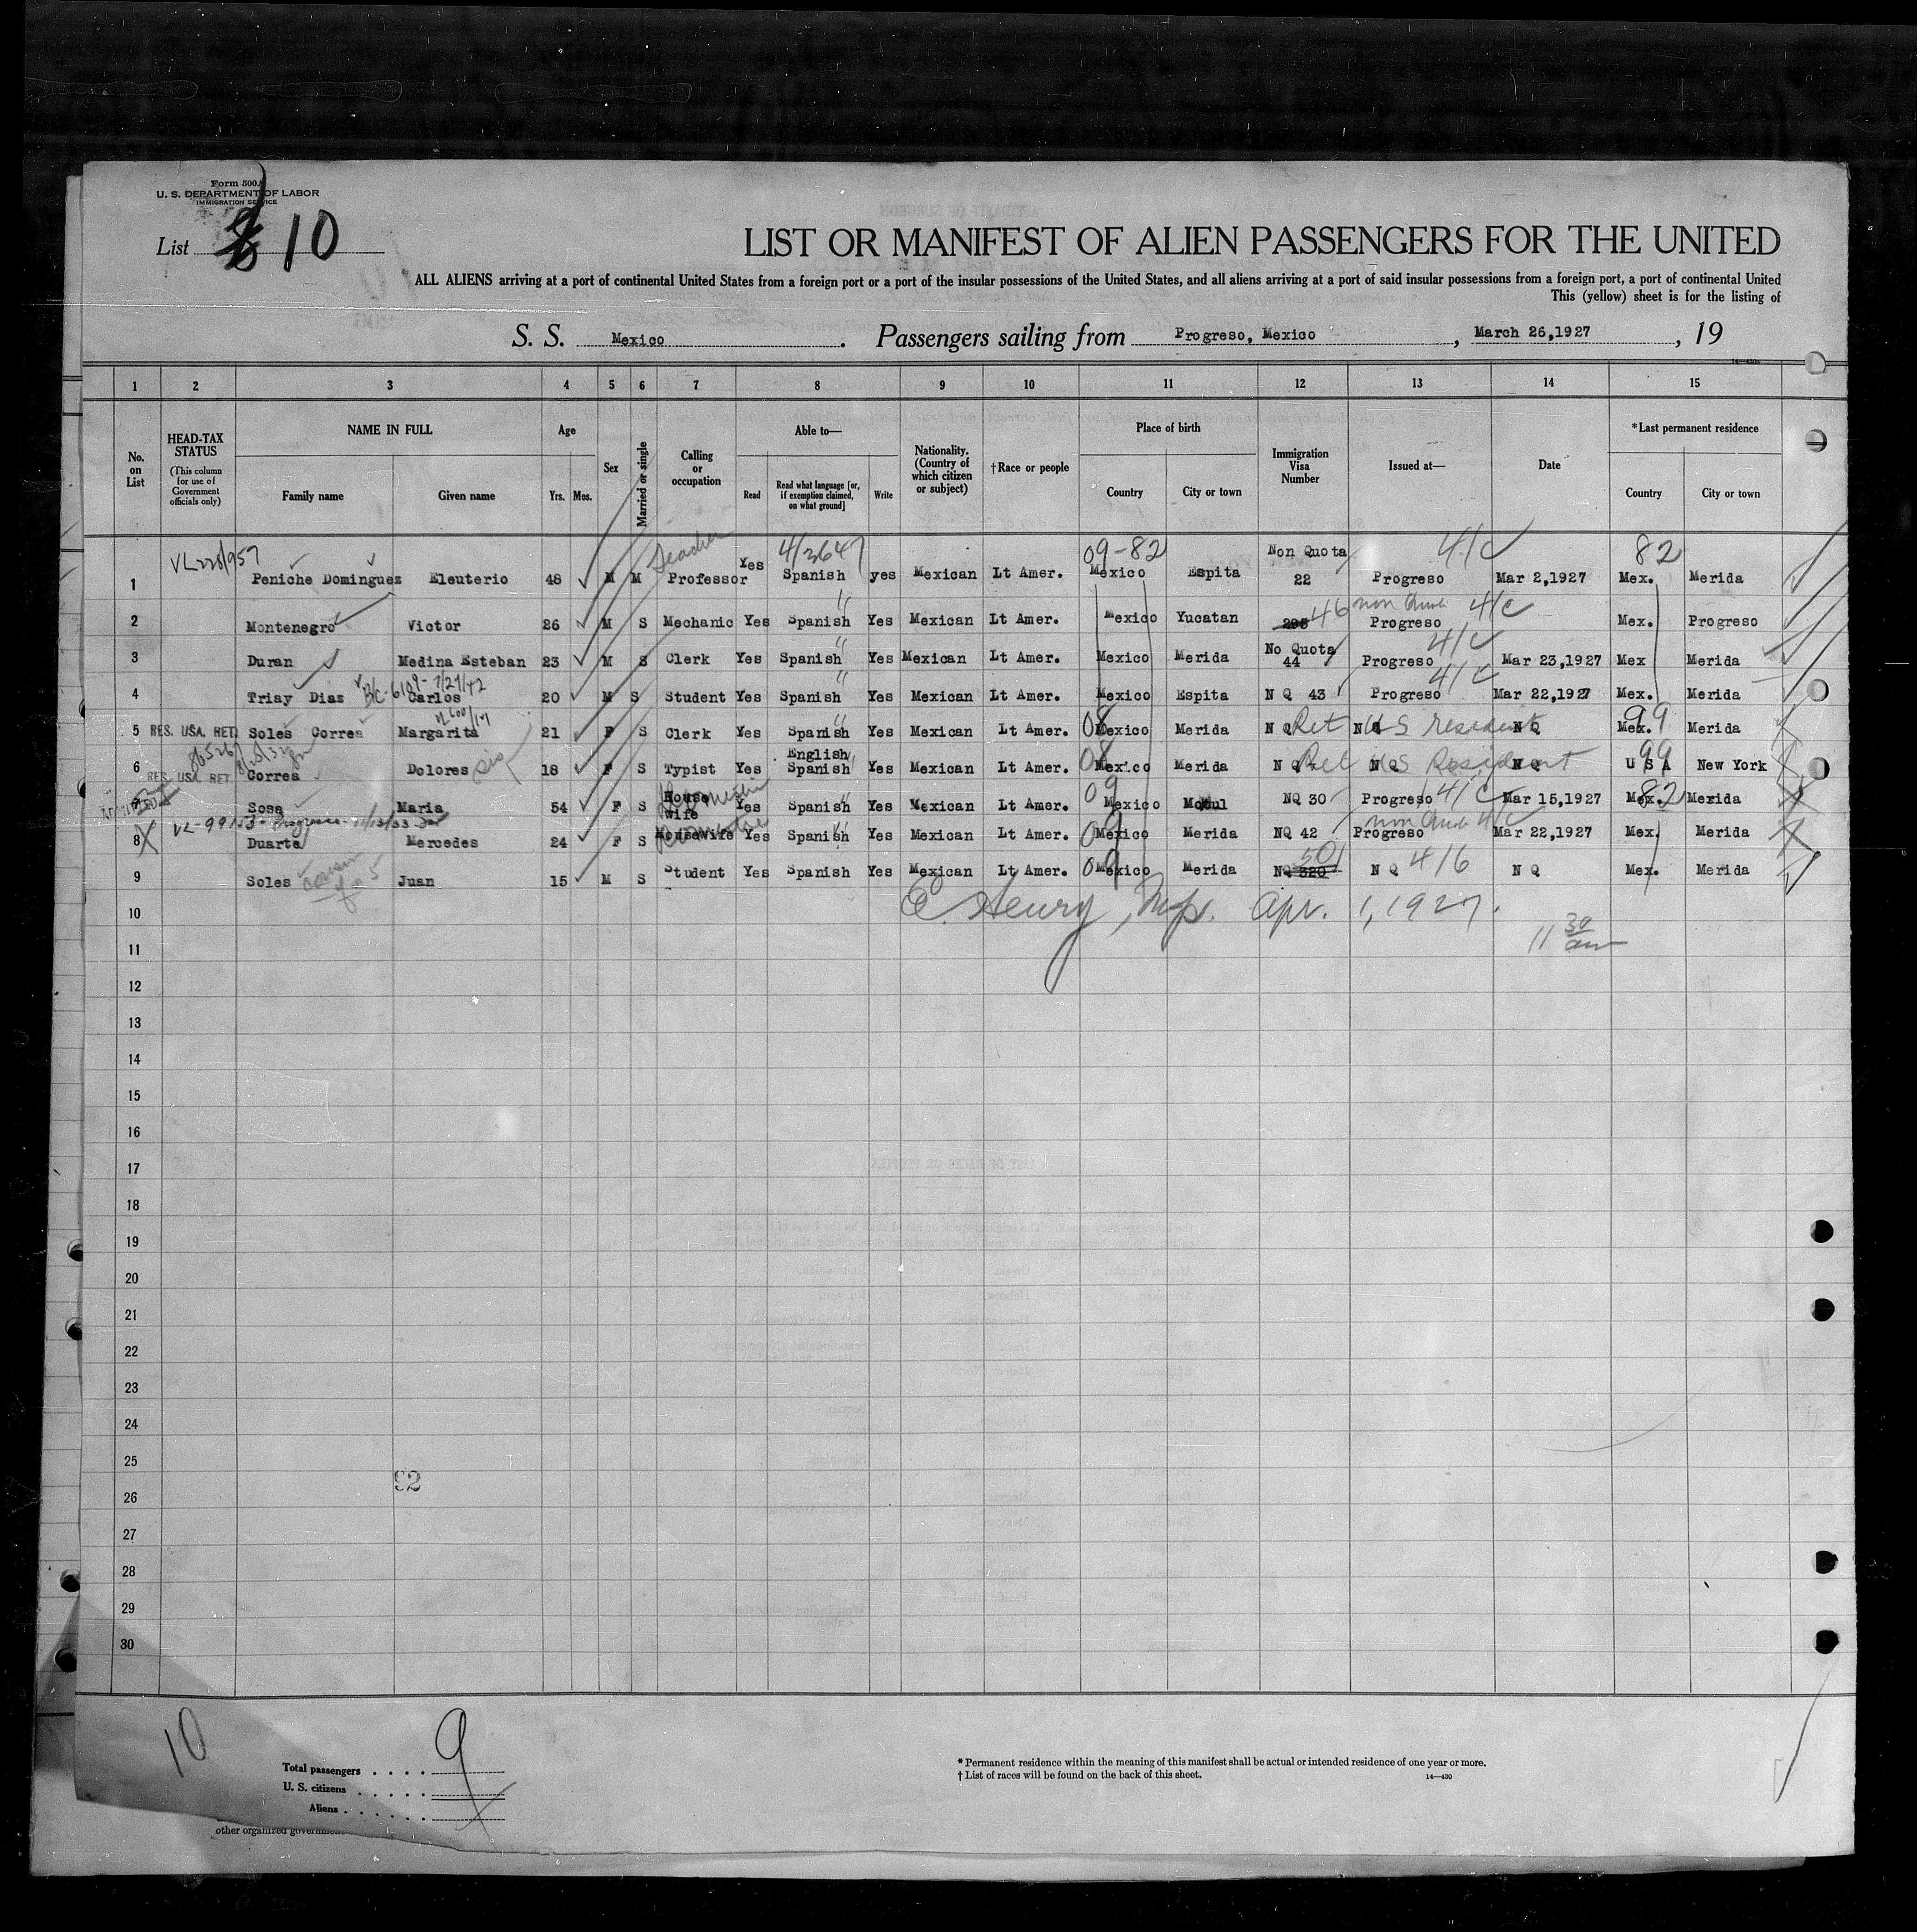 Form 500A
U. S. DEPARTMENT OF LABOR
IMMIGRATION SERVICE
List 10
LIST OR MANIFEST OF ALIEN PASSENGERS FOR THE UNITED
ALL ALIENS arriving at a port of continental United States from a foreign port or a port of the insular possessions of the United States, and all aliens arriving at a port of said insular possessions from a foreign port, a port of continental United
This (yellow) sheet is for the listing of
S. S. Mexico. Passengers sailing from Progreso, Mexico, March 26,1927, 19
14—430a
1 2 3 4 5 6 7 8 9 10 11 12 13 14 15
No. on List
HEAD-TAX STATUS (This column for use of Government officials only)
NAME IN FULL
Family name Given name
Age
Yrs. Mos.
Sex
Married or single
Calling or occupation
Able to—
Read Read what language [or, if exemption claimed, on what ground] Write
Nationality. (Country of which citizen or subject)
†Race or people
Place of birth
Country City or town
Immigration Visa Number
Issued at—
Date
*Last permanent residence
Country City or town
VL 228/957 Teacher 4/3647 09-82 4/c 82
1 Peniche Dominguez Eleuterio 48 M M Professor Yes Spanish yes Mexican Lt Amer. Mexico Espita Non Quota 22 Progreso Mar 2,1927 Mex. Merida
46 non Quota 4/c
2 Montenegro Victor 26 M S Mechanic Yes Spanish Yes Mexican Lt Amer. Mexico Yucatan 295 Progreso Mex. Progreso
4/c
3 Duran Medina Esteban 23 M S Clerk Yes Spanish Yes Mexican Lt Amer. Mexico Merida No Quota 44 Progreso Mar 23,1927 Mex Merida
B/C-6109-7/27/42 4/c
4 Triay Diaz Carlos 20 M S Student Yes Spanish Yes Mexican Lt Amer. Mexico Espita N Q 43 Progreso Mar 22,1927 Mex. Merida
5 RES. USA. RET. Soles Correa Margarita 21 F S Clerk Yes Spanish Yes Mexican Lt Amer. 08 Mexico Merida N Q Ret N Q US resident N Q 99 Mex. Merida
6 RES. USA. RET. Correa Dolores sis 18 F S Typist Yes English, Spanish Yes Mexican Lt Amer. 08 Mexico Merida N Q Ret N Q US Resident N Q 99 U S A New York
7 Sosa Maria 54 F S House wife Domestic Yes Spanish Yes Mexican Lt Amer. 09 Mexico Motul NQ 30 Progreso 4/c Mar 15,1927 82 Mex. Merida
VL-99153-Progreso-11/13/33
8 Duarte Mercedes 24 F S HouseWife Domestic Yes Spanish Yes Mexican Lt Amer. 09 Mexico Merida NQ 42 Progreso non Quota 4/c Mar 22,1927 Mex. Merida
9 Soles cousin of 5 Juan 15 M S Student Yes Spanish Yes Mexican Lt Amer. 09 Mexico Merida NQ 320 501 N Q 4/6 N Q Mex. Merida
10 C. Henry, Insp. Apr. 1, 1927.
11 11 30 am
12
13
14
15
16
17
18
19
20
21
22
23
24
25
92
26
27
28
29
30
10
Total passengers . . . . 9
U. S. citizens . . . . .
Aliens . . . . . .
other organized
* Permanent residence within the meaning of this manifest shall be actual or intended residence of one year or more.
† List of races will be found on the back of this sheet.
14—430